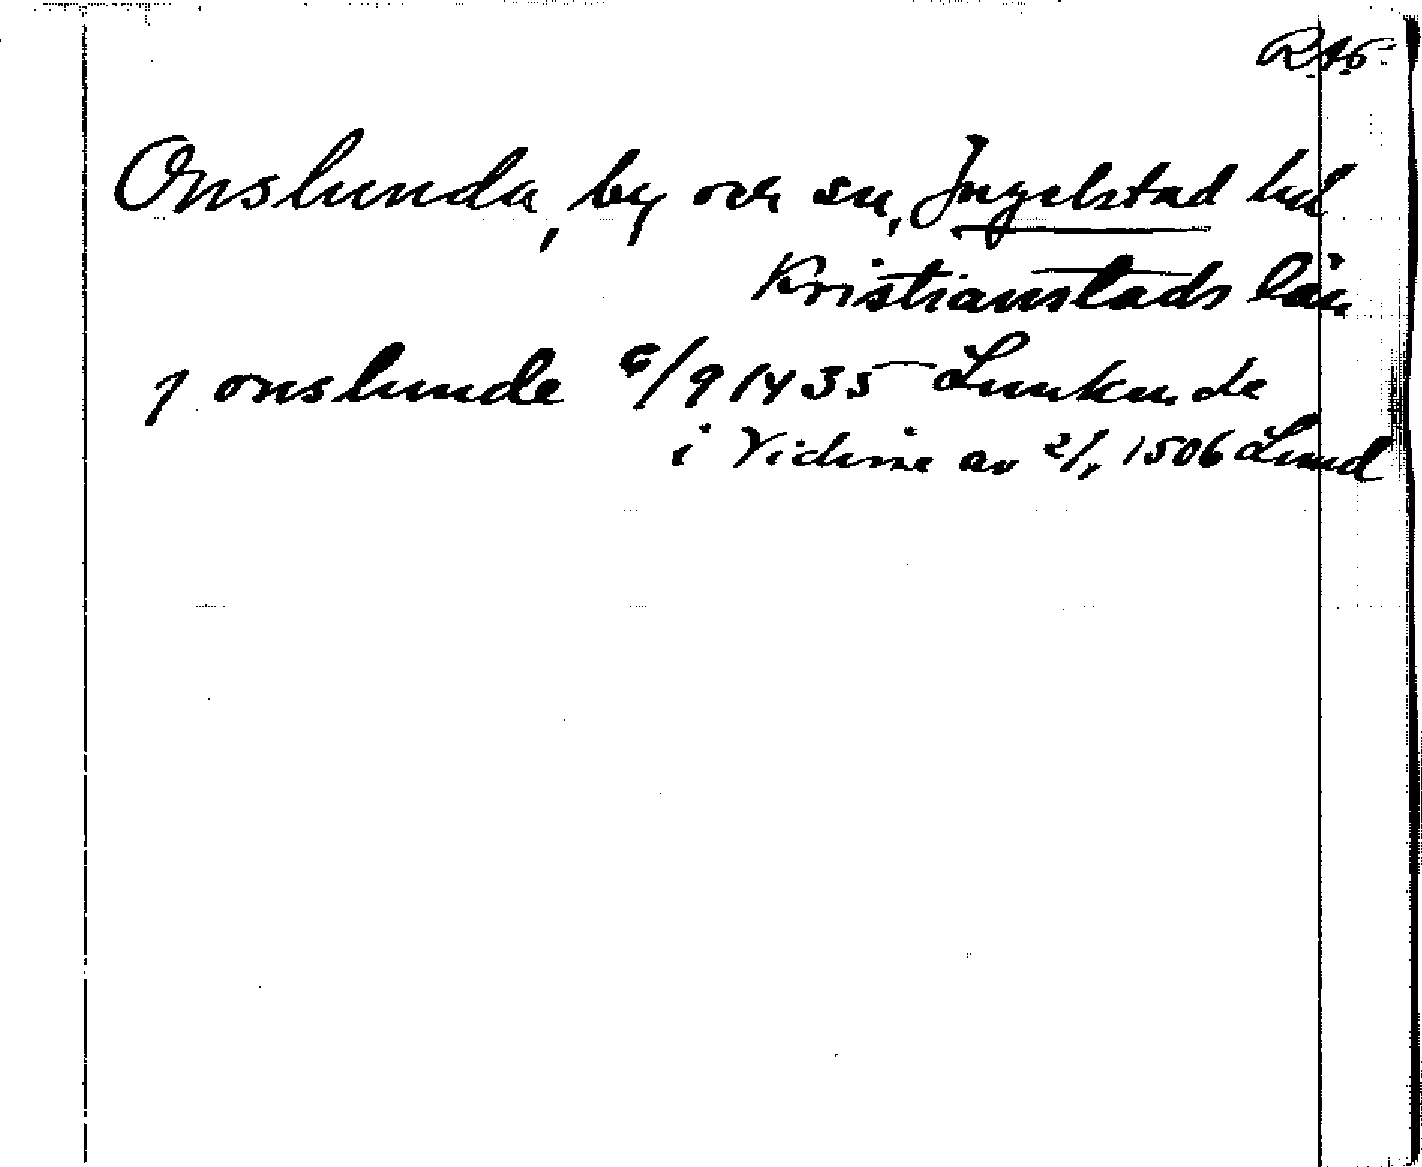 RAp
Onslunda, by och sn, Ingelstad hd
Kristianstads län
j onslunde 6/9 1435 Lunkunde
i Vidisse av 2/1 1506 Lund